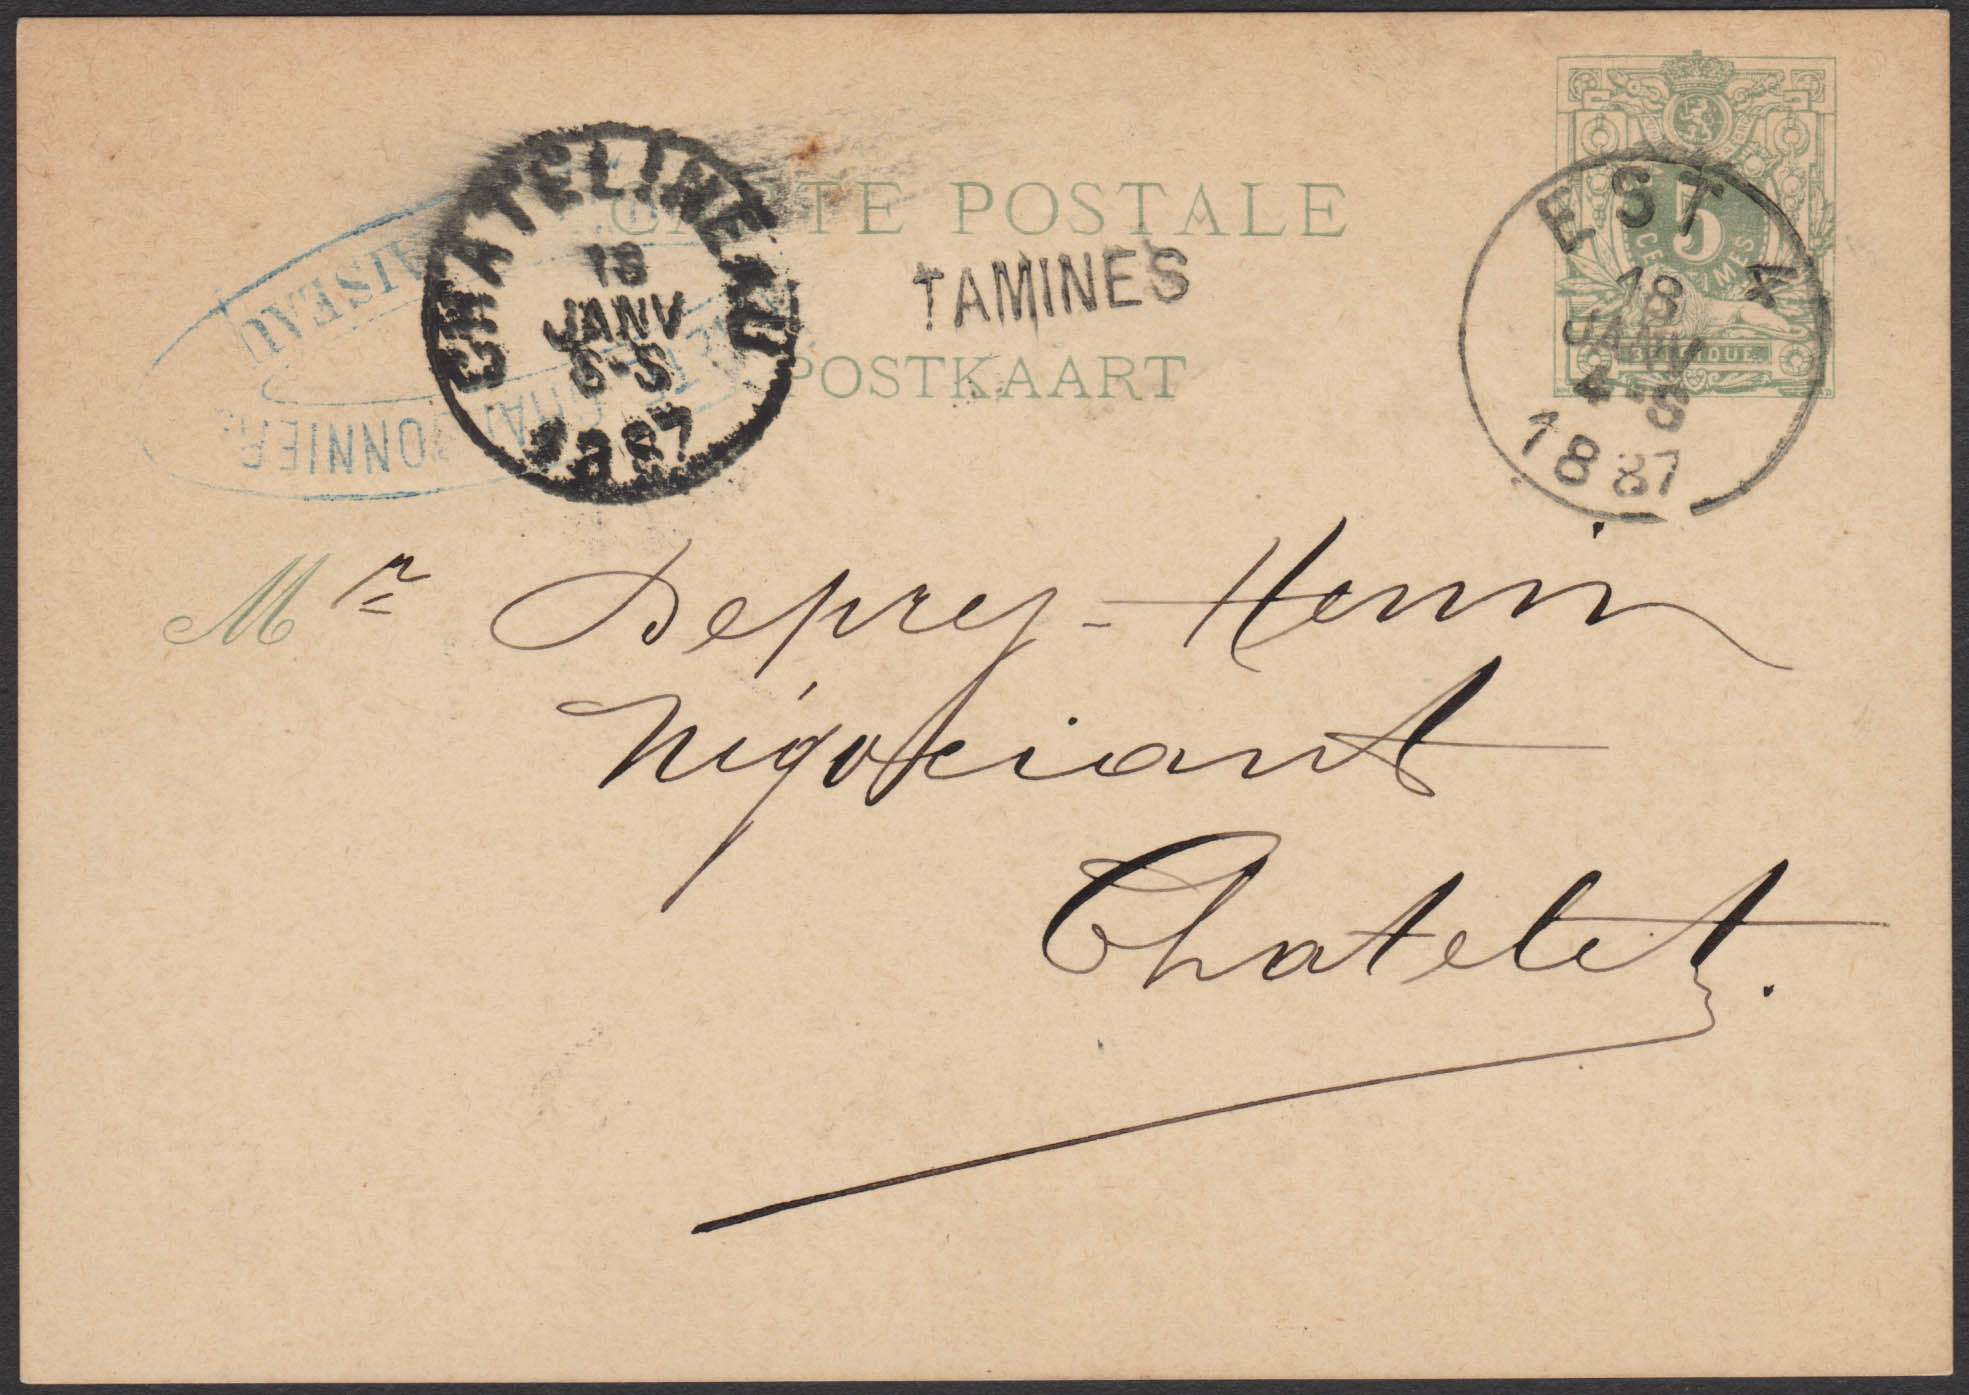 CARTE POSTALE
TAMINES
POSTKAART
CHATELINEAU
18
JANV
6-S
1887
EST 4
18
JANV
4-S
1887
5
CENTIMES
BELGIQUE
AISEAU
CHARBONNIER
Mr Deprey-Henin
Négociant
Chatelet.